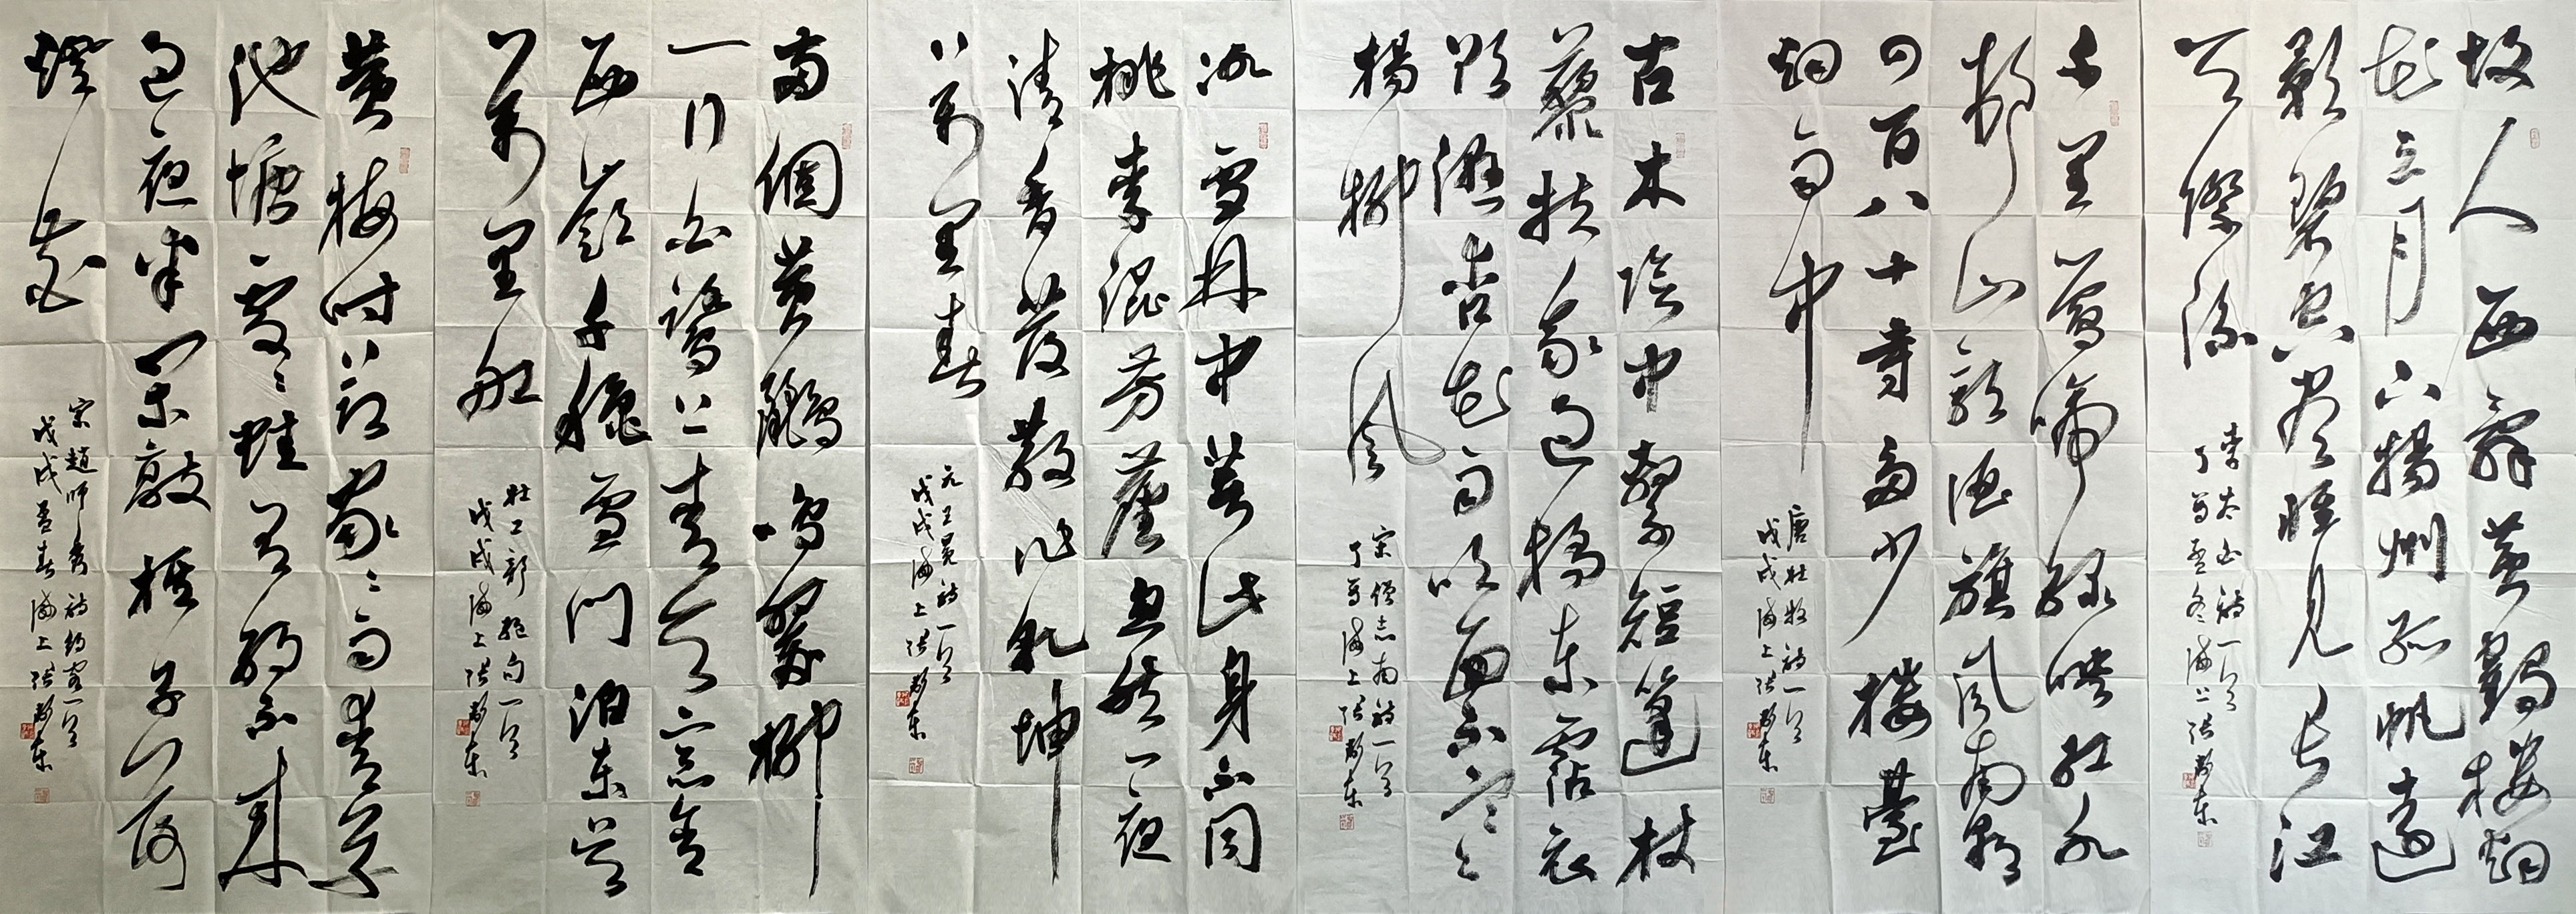 故人西辭黃鶴樓煙
花三月下揚州孤帆遠
影碧空盡惟見長江
天際流
李太白詩一首
丁酉孟冬海上張東
千里鶯啼綠映紅水
村山郭酒旗風南朝
四百八十寺多少樓臺
烟雨中
唐杜牧詩一首
戊戌海上張東
古木陰中繫短篷杖
藜扶我過橋東霑衣
欲濕杏花雨吹面不寒
楊柳風
宋僧志南詩一首
丁酉海上張東
冰雪林中著此身不同
桃李混芳塵忽然一夜
清香發散作乾坤
萬里春
元王冕詩一首
戊戌海上張東
兩個黃鸝鳴翠柳
一行白鷺上青天窗含
西嶺千穐雪門泊東吳
萬里船
杜工部絕句一首
戊戌海上張東
黃梅時節家家雨青草
池塘處處蛙有約不來
過夜半閒敲棋子落
燈花
宋趙師秀詩約客一首
戊戌孟春海上張東